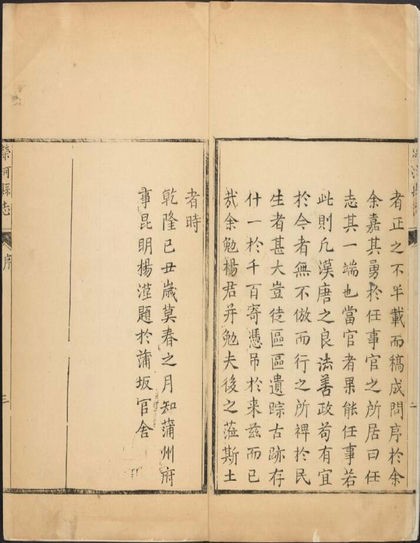 者正之不半載而稿成問序於余
余嘉其勇於任事官之所居曰任
志其一端也當官者果能任事若
此則凡漢唐之良法善政苟有宜
於今者無不倣而行之所裨於民
生者甚大豈徒區區遺踪古跡存
什一於千百寄憑吊於来兹而已
哉余勉楊君并勉夫後之蒞斯土
二
者時
乾隆己丑歲莫春之月知蒲州府
事昆明楊滋題於蒲坂官舍
榮河縣志
序
三